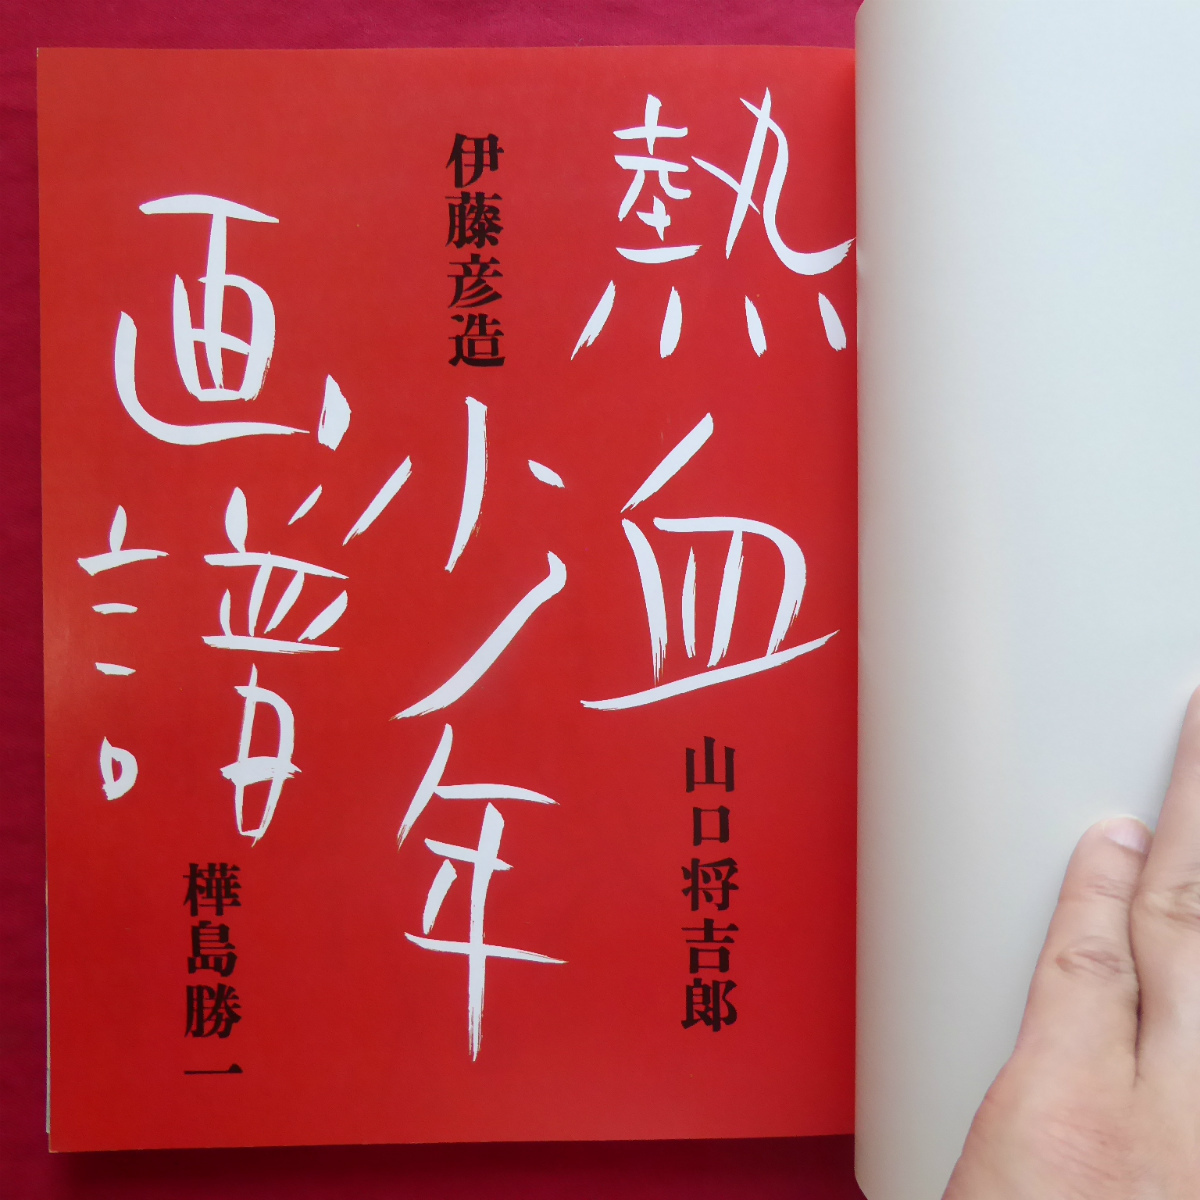 熱血
山口将吉郎
伊藤彦造
少年
画譜
樺島勝一